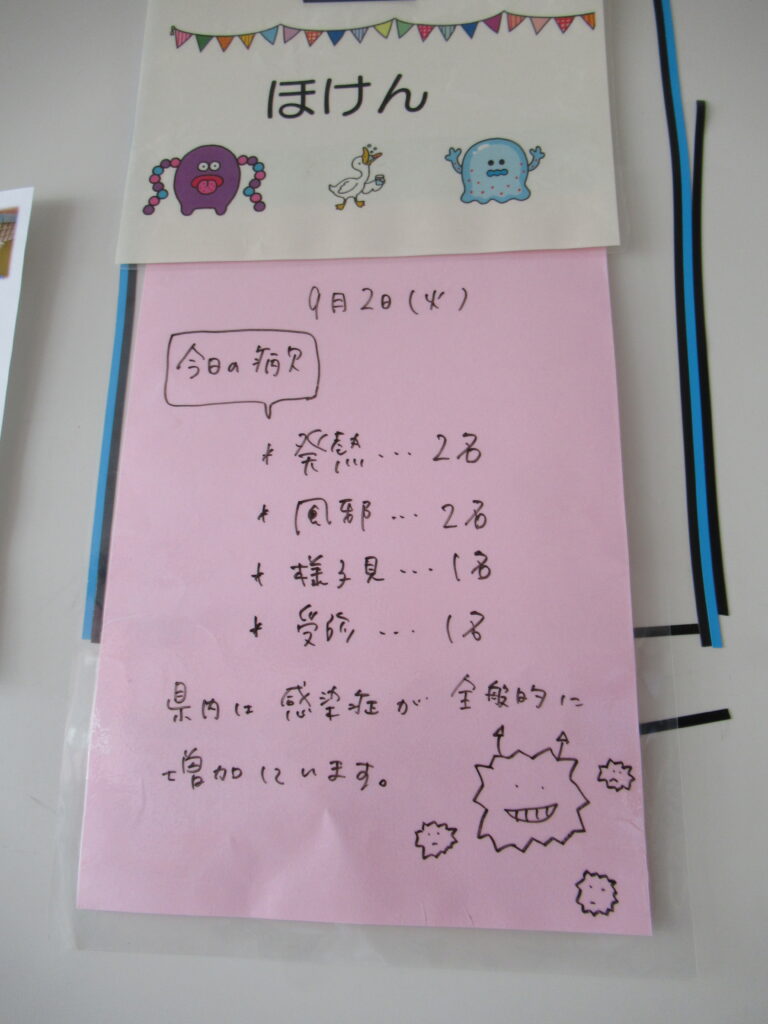 ほけん
9月2日(火)
今日の病欠
* 発熱… 2名
* 風邪… 2名
* 様子見… 1名
* 受診… 1名
県内は感染症が全般的に
増加しています。